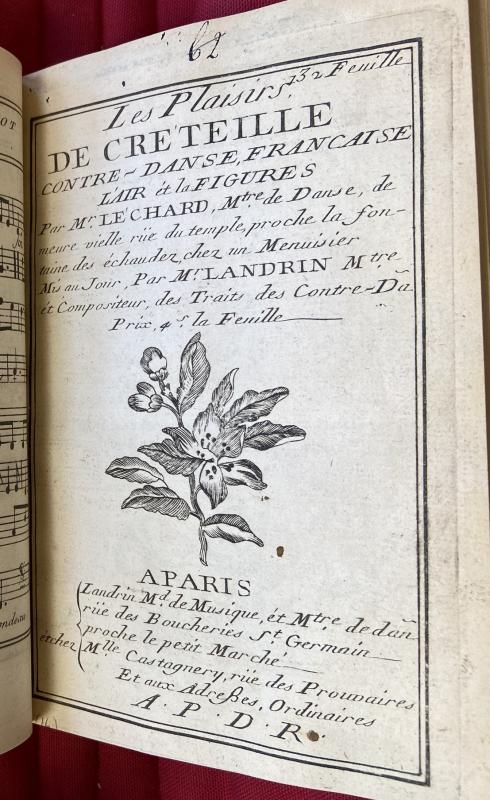 62
Les Plaisirs, 132 Feuille
DE CRÉTEILLE
CONTRE-DANSE, FRANCAISE
L'AIR ét la FIGURES
Par Mr. LÉCHARD, Mtre de Danse, de
meure vielle rüe du temple, proche la fon-
taine des échaudez, chez un Menuisier
Mis au Jour, Par Mr. LANDRIN Mtre
ét Compositeur, des Traits des Contre-Dã
Prix, 4s. la Feuille
A PARIS
Landrin Md. de Musique, ét Mtre de dañ
rüe des Boucheries St. Germain
proche le petit Marché
étchez Mlle Castagnery, rüe des Prouvaires
Et aux Adreßes, Ordinaires
A. P. D. R.
OT
ondeau